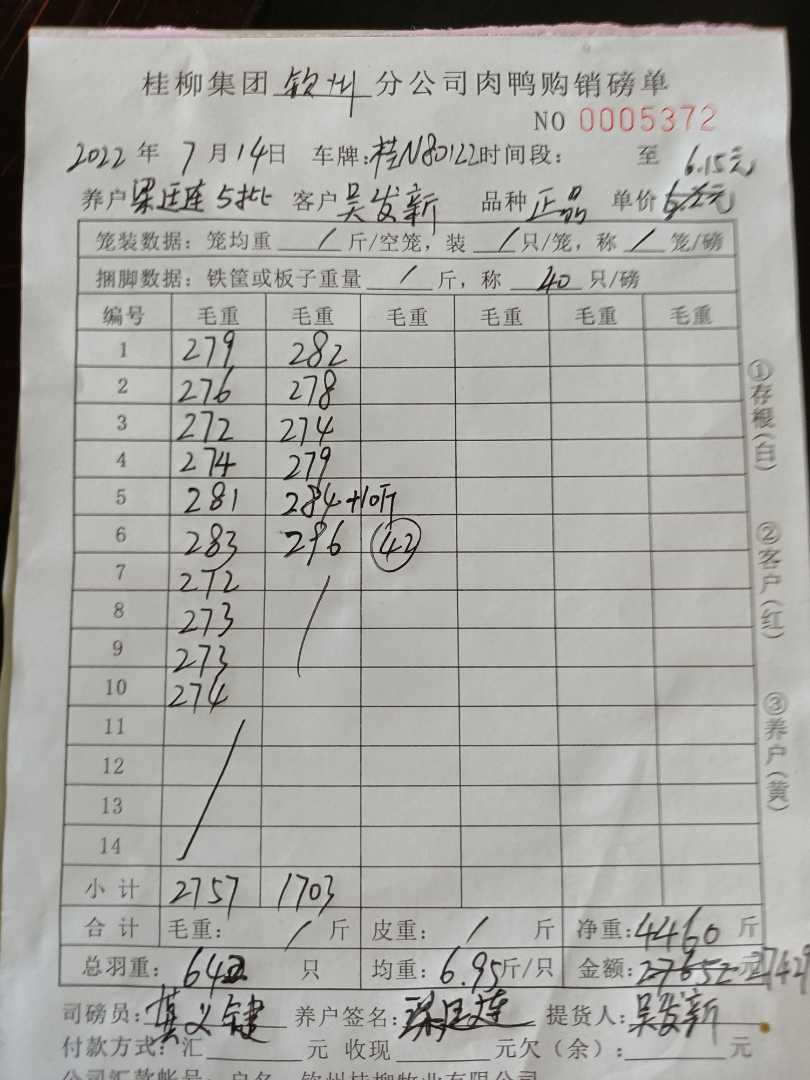 桂柳集团 钦州 分公司肉鸭购销磅单
NO 0005372
2022 年 7 月 14 日 车牌:桂N80122 时间段: 至 6.15元
养户 梁廷连 5批 客户 吴发新 品种 正品 单价 6.2元
笼装数据: 笼均重 / 斤/空笼, 装 / 只/笼, 称 / 笼/磅
捆脚数据: 铁筐或板子重量 / 斤, 称 40 只/磅
编号 毛重 毛重 毛重 毛重 毛重 毛重
1 279 282
2 276 278
3 272 274
4 274 279
5 281 284+10斤
6 283 296 42
7 272 /
8 273
9 273
10 274
11 /
12
13
14
小计 2757 1703
合计 毛重: / 斤 皮重: / 斤 净重: 4460 斤
总羽重: 642 只 均重: 6.95 斤/只 金额: 27652 元 27429
司磅员: 义键 养户签名: 梁廷连 提货人: 吴发新
付款方式: 汇 元 收现 元欠(余): 元
公司汇款帐号: 户名 钦州桂柳牧业有限公司
①存根(白)
②客户(红)
③养户(黄)